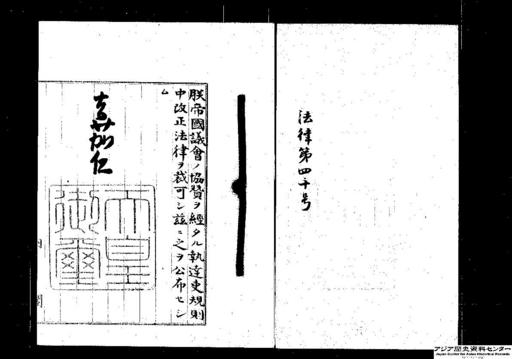 法律第四十号
朕帝國議會ノ協賛ヲ經タル執達吏規則
中改正法律ヲ裁可シ茲ニ之ヲ公布セシ
ム
嘉仁
天皇
御璽
内閣
アジア歴史資料センター
Japan Center for Asian Historical Records